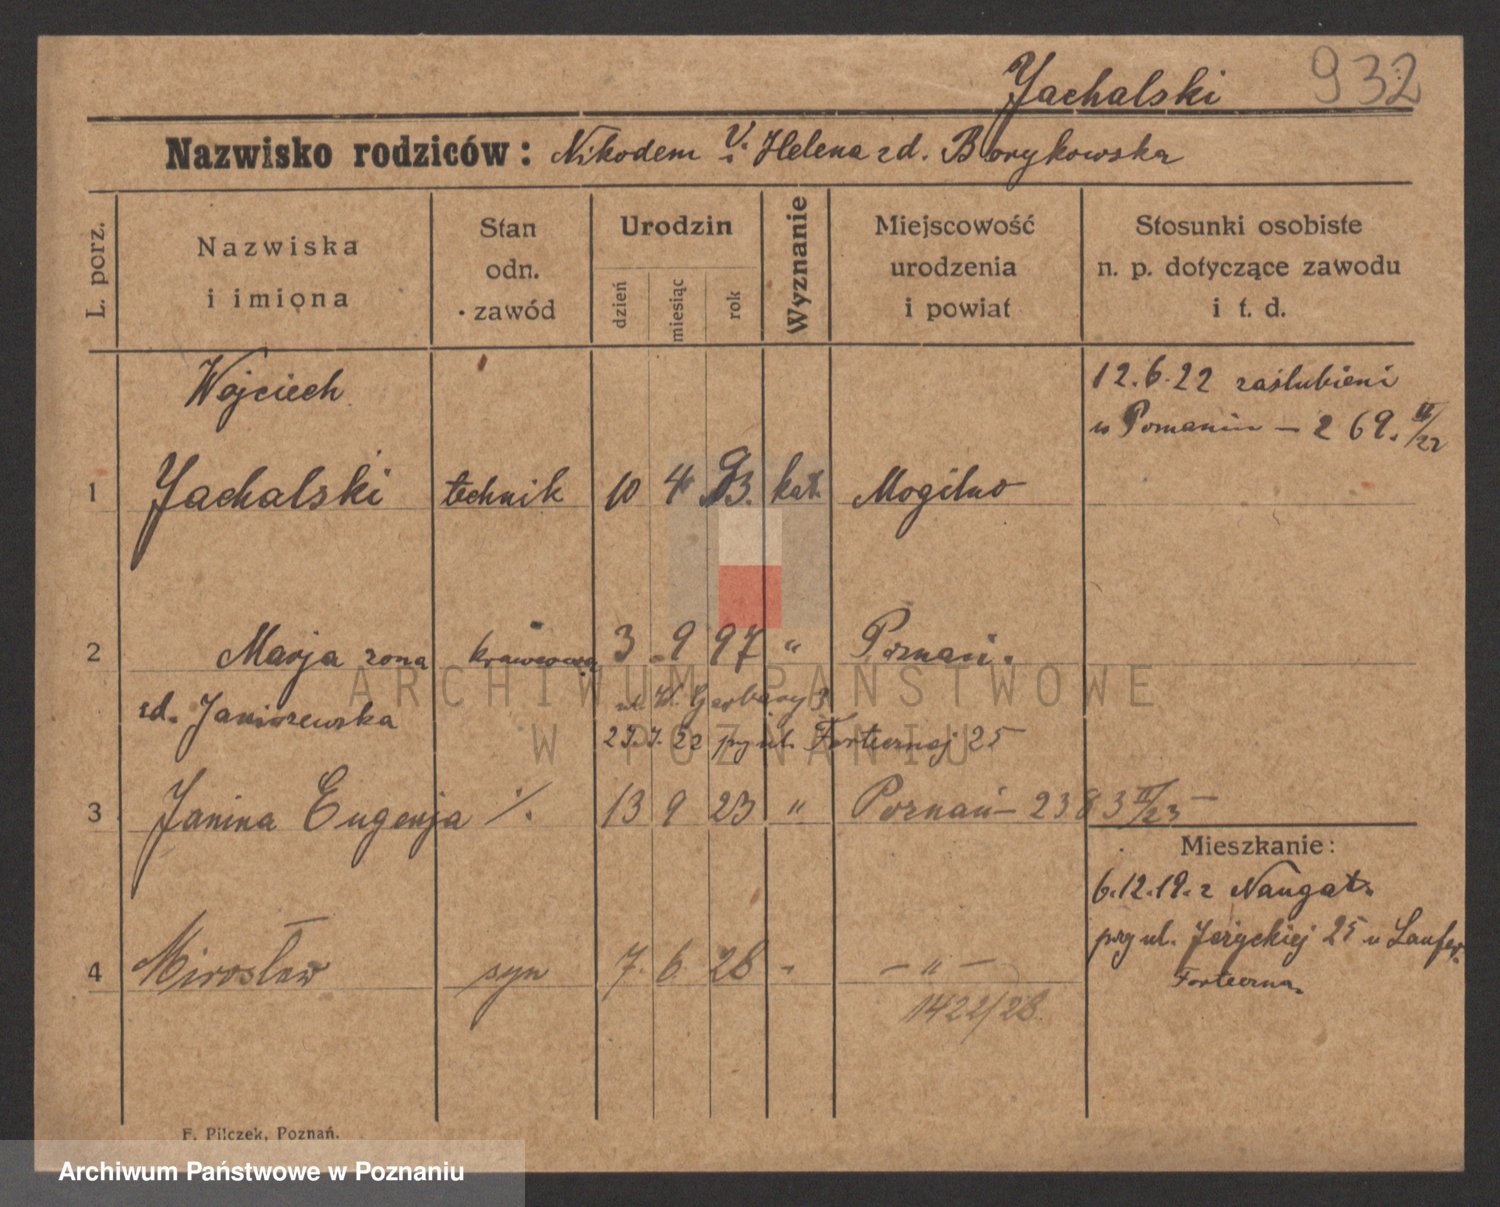 Jachalski 932
Nazwisko rodziców: Nikodem i Helena zd. Borykowska
L. porz.
Nazwiska
i imiona
Stan
odn.
zawód
Urodzin
dzień
miesiąc
rok
Wyznanie
Miejscowość
urodzenia
i powiat
Stosunki osobiste
n. p. dotyczące zawodu
i t. d.
Wojciech
12.6.22 zaślubieni
w Poznaniu – 269. II/22
1 Jachalski technik 10 4 93. kat. Mogilno
2 Marja żona krawcowa 3 9 97 " Poznań.
zd. Janiszewska
ul. W. Garbary 3
22 przy ul. Fortecznej 25
3 Janina Eugenja ./. 13 9 23 " Poznań – 2383 II/23 –
Mieszkanie:
6.12.19. z Naugat.
przy ul. Jeżyckiej 25 u Laufer.
Forteczna.
4 Mirosław syn 7. 6. 28 – " –
1422/28.
F. Pilczek, Poznań.
ARCHIWUM PAŃSTWOWE
W POZNANIU
Archiwum Państwowe w Poznaniu